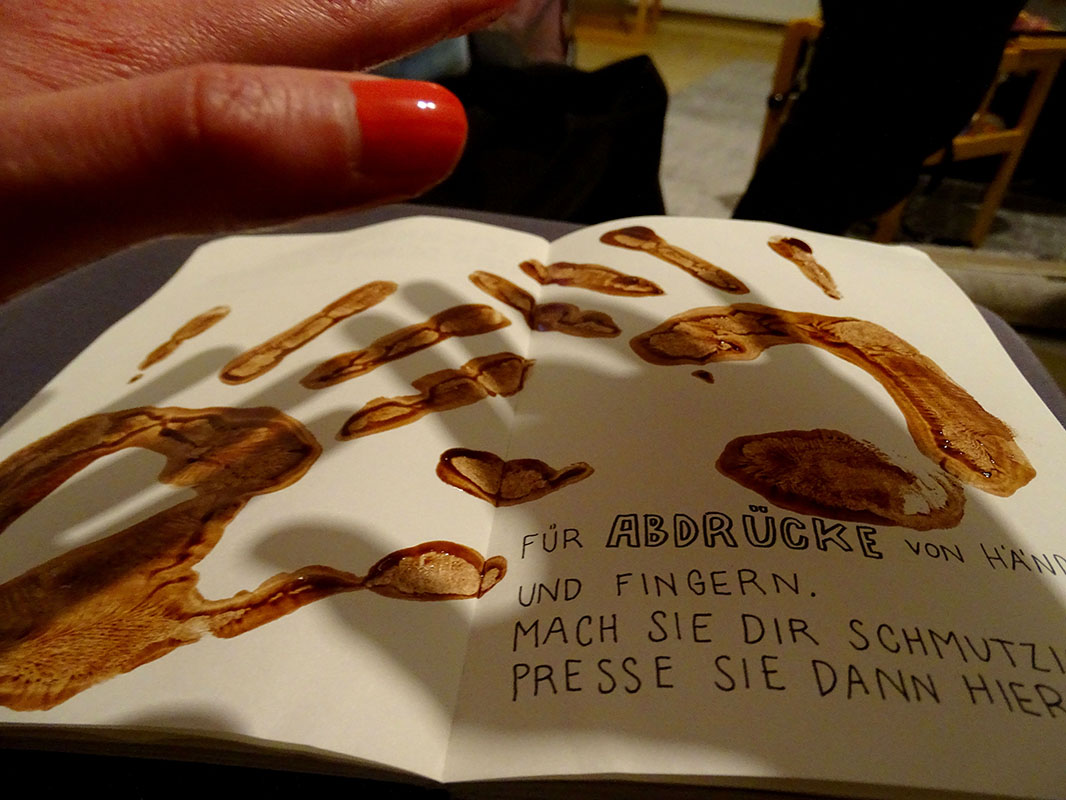 FÜR ABDRÜCKE VON HÄND
UND FINGERN.
MACH SIE DIR SCHMUTZI
PRESSE SIE DANN HIER